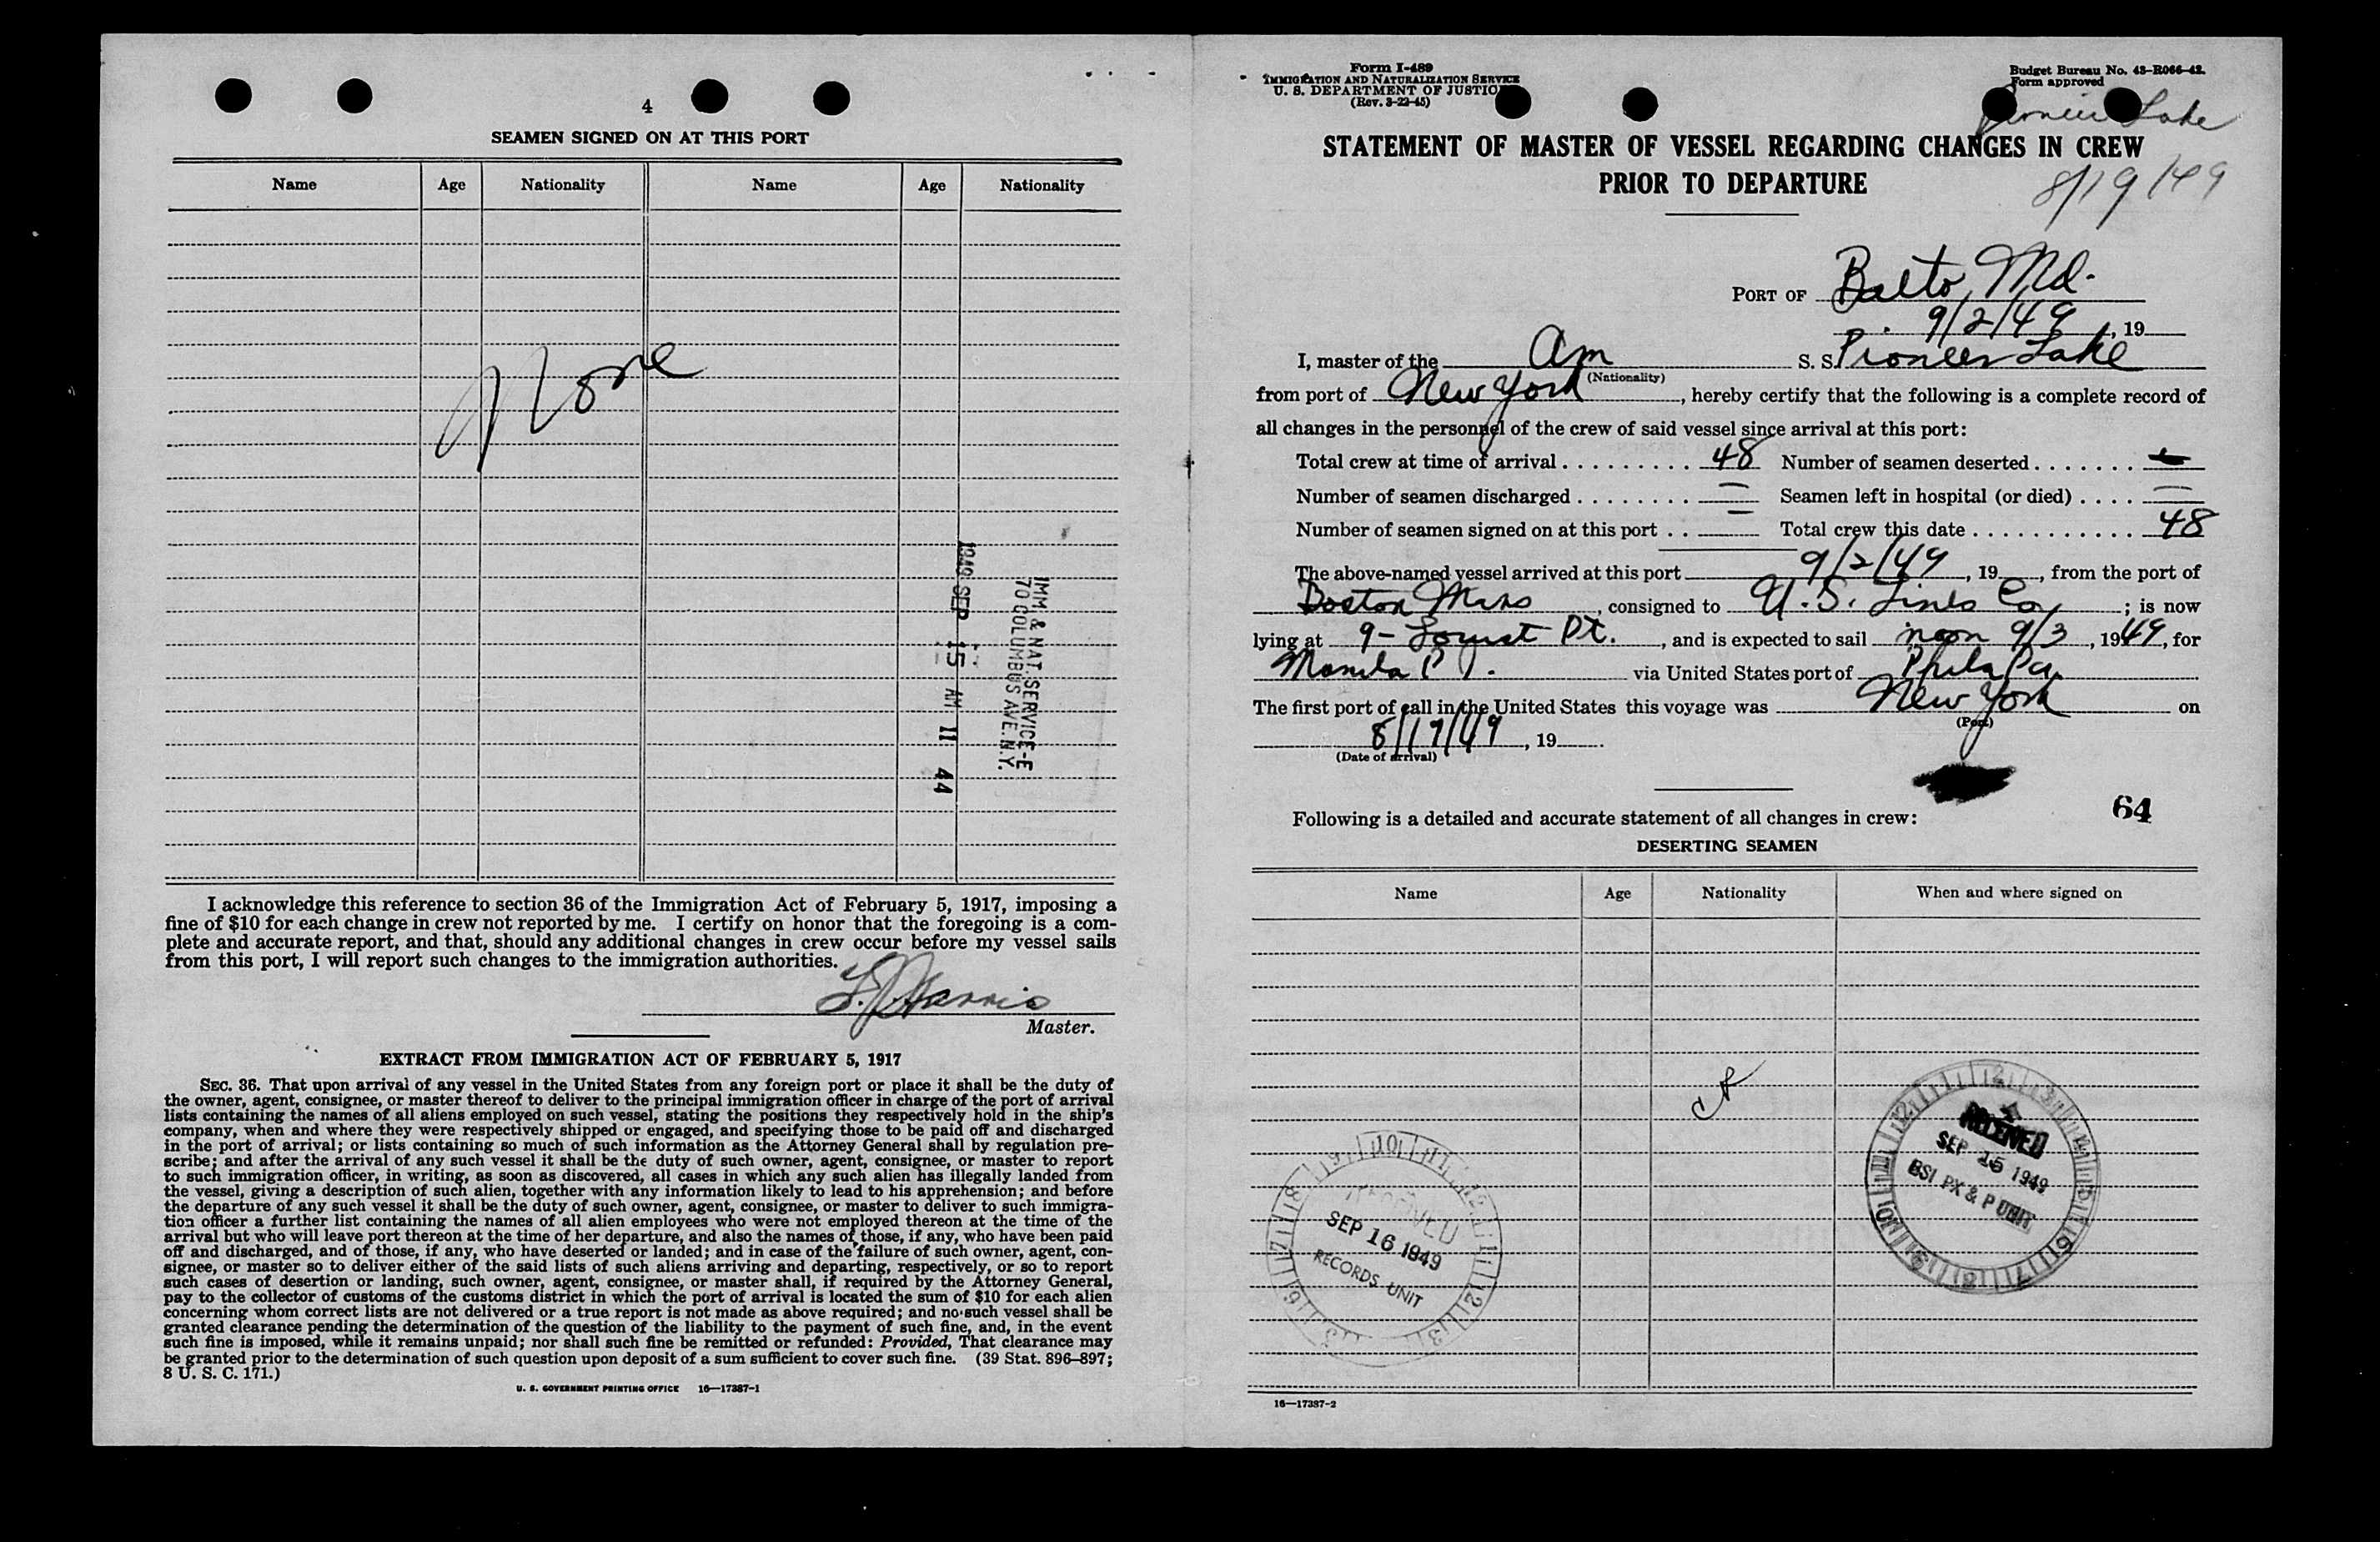 4
SEAMEN SIGNED ON AT THIS PORT
Name Age Nationality Name Age Nationality
None
IMM. & NAT. SERVICE-E
70 COLUMBUS AVE. N.Y.
1949 SEP 15 AM 11 44
I acknowledge this reference to section 36 of the Immigration Act of February 5, 1917, imposing a
fine of $10 for each change in crew not reported by me. I certify on honor that the foregoing is a com-
plete and accurate report, and that, should any additional changes in crew occur before my vessel sails
from this port, I will report such changes to the immigration authorities.
Harris
Master.
EXTRACT FROM IMMIGRATION ACT OF FEBRUARY 5, 1917
SEC. 36. That upon arrival of any vessel in the United States from any foreign port or place it shall be the duty of
the owner, agent, consignee, or master thereof to deliver to the principal immigration officer in charge of the port of arrival
lists containing the names of all aliens employed on such vessel, stating the positions they respectively hold in the ship's
company, when and where they were respectively shipped or engaged, and specifying those to be paid off and discharged
in the port of arrival; or lists containing so much of such information as the Attorney General shall by regulation pre-
scribe; and after the arrival of any such vessel it shall be the duty of such owner, agent, consignee, or master to report
to such immigration officer, in writing, as soon as discovered, all cases in which any such alien has illegally landed from
the vessel, giving a description of such alien, together with any information likely to lead to his apprehension; and before
the departure of any such vessel it shall be the duty of such owner, agent, consignee, or master to deliver to such immigra-
tion officer a further list containing the names of all alien employees who were not employed thereon at the time of the
arrival but who will leave port thereon at the time of her departure, and also the names of those, if any, who have been paid
off and discharged, and of those, if any, who have deserted or landed; and in case of the failure of such owner, agent, con-
signee, or master so to deliver either of the said lists of such aliens arriving and departing, respectively, or so to report
such cases of desertion or landing, such owner, agent, consignee, or master shall, if required by the Attorney General,
pay to the collector of customs of the customs district in which the port of arrival is located the sum of $10 for each alien
concerning whom correct lists are not delivered or a true report is not made as above required; and no such vessel shall be
granted clearance pending the determination of the question of the liability to the payment of such fine, and, in the event
such fine is imposed, while it remains unpaid; nor shall such fine be remitted or refunded: Provided, That clearance may
be granted prior to the determination of such question upon deposit of a sum sufficient to cover such fine. (39 Stat. 896–897;
8 U. S. C. 171.)
U. S. GOVERNMENT PRINTING OFFICE 16—17387-1
Form I-489
IMMIGRATION AND NATURALIZATION SERVICE
U. S. DEPARTMENT OF JUSTICE
(Rev. 3-22-45)
Budget Bureau No. 43-R066-42.
Form approved
Pioneer Lake
STATEMENT OF MASTER OF VESSEL REGARDING CHANGES IN CREW
PRIOR TO DEPARTURE
8/19/49
PORT OF Balto, Md.
9/2/49, 19
I, master of the Am S. S. Pioneer Lake
(Nationality)
from port of New York, hereby certify that the following is a complete record of
all changes in the personnel of the crew of said vessel since arrival at this port:
Total crew at time of arrival 48 Number of seamen deserted —
Number of seamen discharged — Seamen left in hospital (or died) —
Number of seamen signed on at this port — Total crew this date 48
The above-named vessel arrived at this port 9/2/49, 19, from the port of
Boston Mass, consigned to U. S. Lines Co; is now
lying at 9- Locust Pt., and is expected to sail noon 9/3, 1949, for
Manila P.I. via United States port of Phila Pa.
The first port of call in the United States this voyage was New York on
(Port)
8/19/49, 19
(Date of arrival)
64
Following is a detailed and accurate statement of all changes in crew:
DESERTING SEAMEN
Name Age Nationality When and where signed on
RECEIVED
SEP 15 1949
BSI PX & P UNIT
RECEIVED
SEP 16 1949
RECORDS UNIT
16—17387-2